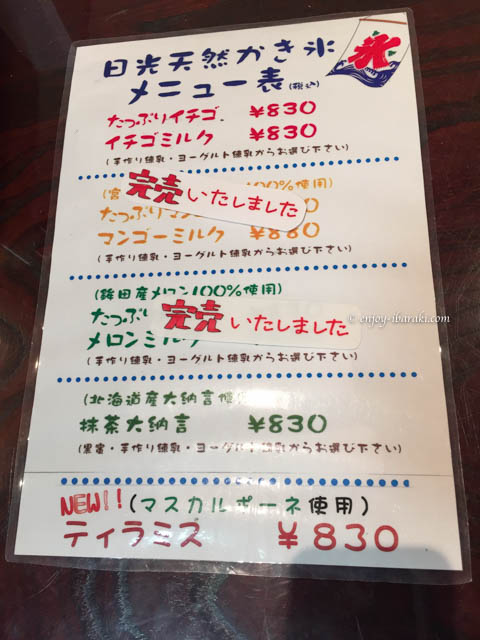 日光天然かき氷
氷
メニュー表(税込)
たっぷりイチゴ ¥830
イチゴミルク ¥830
(手作り練乳・ヨーグルト練乳からお選び下さい)
(宮 100%使用)
完売いたしました
たっぷりマン
マンゴーミルク ¥880
(手作り練乳・ヨーグルト練乳からお選び下さい)
(鉾田産メロン100%使用)
たっぷ
完売いたしました
メロンミルク
(手作り練乳・ヨーグルト練乳からお選び下さい)
(北海道産大納言使
抹茶大納言 ¥830
(黒蜜・手作り練乳・ヨーグルト練乳からお選び下さい)
NEW!!(マスカルポーネ使用)
ティラミス ¥830
© enjoy-ibaraki.com